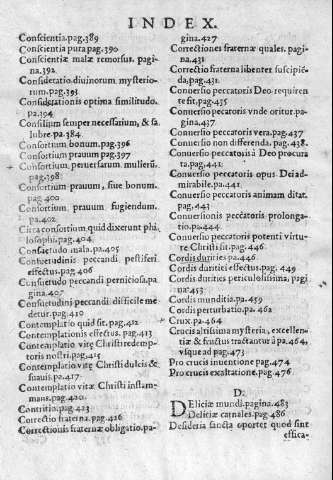 INDEX.
Conscientia.pag.389
Conscientia pura pag.390
Conscientiæ malæ remorsus. pagi
na.392
Consideratio diuinorum mysterio-
rum.pag.393
Considerationis optima similitudo.
pa.394
Consilium semper necessarium, & sa
lubre.pa.384.
Consortium bonum.pag.396
Consortium prauum pag.397
Consortium, peruersarum mulierū.
pag.398
Consortium prauum, siue bonum.
pag 400
Consortium prauum fugiendum.
pa.402
Circa consortium, quid dixerunt phi
losophi.pag.404
Consuetudo mala. pa.405
Consuetudinis peccandi pestiferi
effectus.pag.406
Consuetudo peccandi perniciosa.pa
gina.407
Consuetudinē peccandi difficile me
detur.pag.410
Contemplatio quid sit.pag.412
Contemplationis effectus.pag.413
Contemplatio vitę Christi redemp-
toris nostri.pag.415
Contemplatio vitę Christi dulcis &
suauis.pag.417
Contemplatio vitæ Christi inflam-
mans.pag.420
Contritio.pag.423
Correctio fraterna.pag.426
Correctionis fraternæ obligatio.pa-
gina.427
Correctiones fraternæ quales. pagi
na.431
Correctio fraterna libenter suscipiē
da, pag.433
Conuersio peccatoris Deo. requiren
te fit.pag.435
Conuersio pecatoris vnde oritur.pa-
gina.437
Conuersio peccatoris vera.pag.437
Conuersio non differenda. pag.438.
Conuersio peccatoris à Deo procura
ta.pag,441.
Conuersio peccatoris opus Dei ad
mirabile.pa.441.
Conuersio peccatoris animam ditat.
pag,443
Conuersionis peccatoris prolonga-
tio.pa.444
Conuersio peccatoris potenti virtu-
te Christi sit.pag.446
Cordis durities pa.446.
Cordis duritiei effectus.pag.449
Cordis durities periculosissima, pagi
na.453
Cordis munditia.pa.459
Cordis perturbatio.pa.462
Crux.pa.464
Crucis altissima mysteria, excellen-
tiæ & fructus tractantur à pa.464,
vsque ad pag.473
Pro crucis inuentione pag.474
Pro crucis exaltatione.pag.476
D.
DEliciæ mundi.pagina.483
Delitiæ carnales.pag.486
Desideria sancta oportet quod sint
effica-